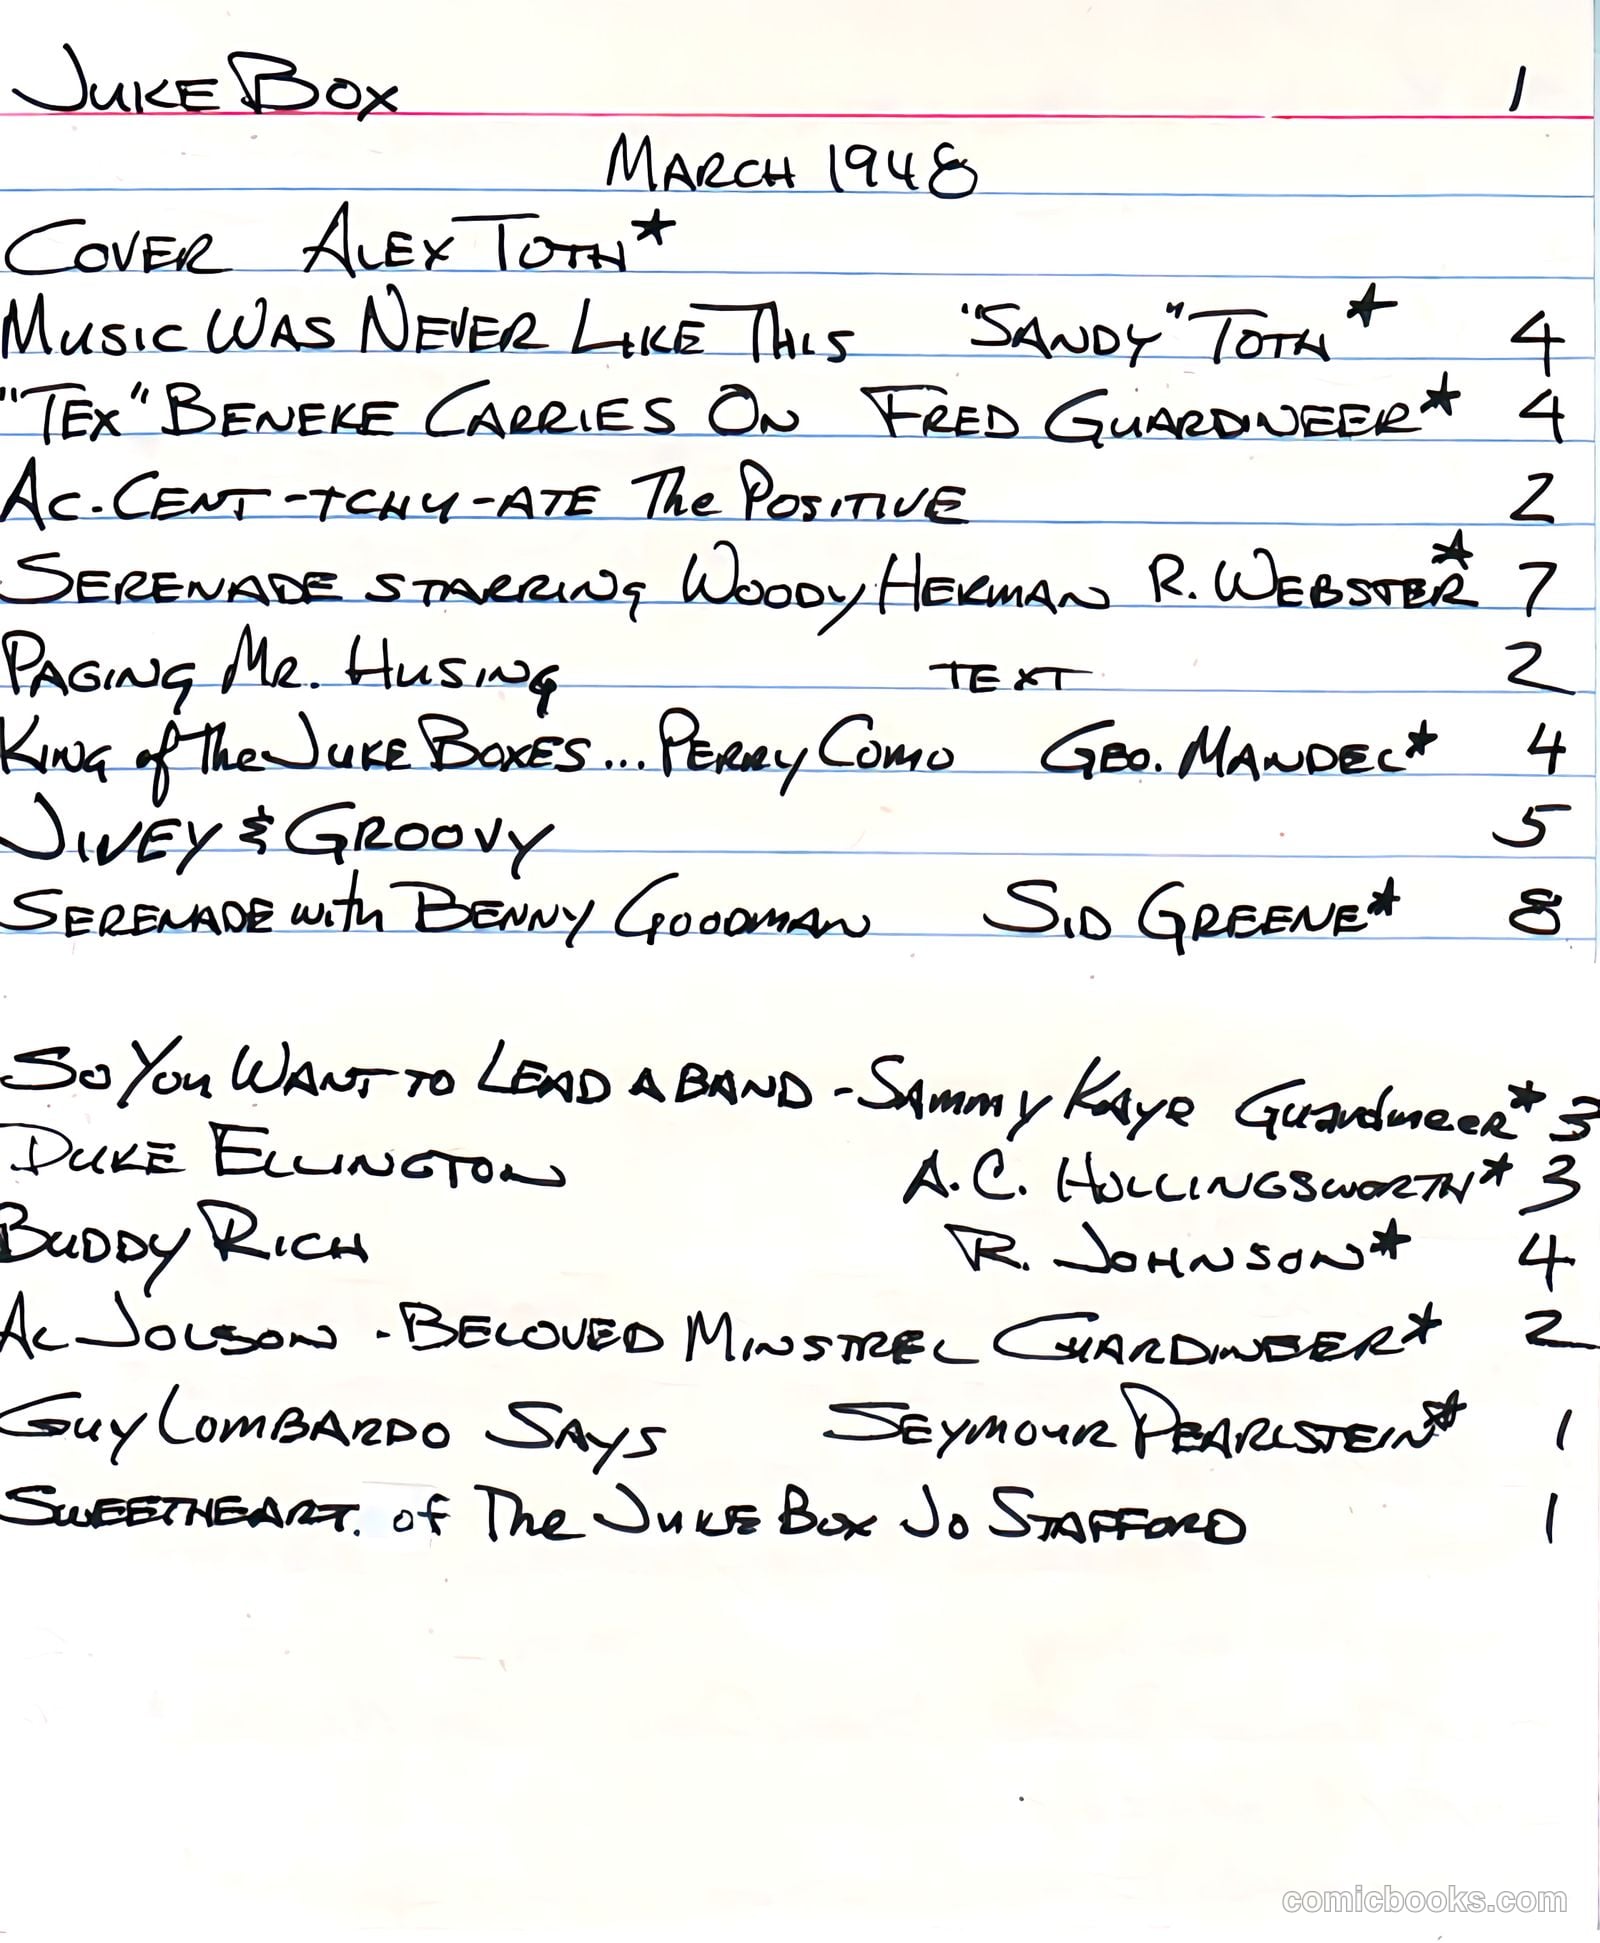 JUKE BOX 1
MARCH 1948
COVER ALEX TOTH*
MUSIC WAS NEVER LIKE THIS "SANDY" TOTH* 4
"TEX" BENEKE CARRIES ON FRED GUARDINEER* 4
AC-CENT-TCHU-ATE The POSITIVE 2
SERENADE STARRING WOODY HERMAN R. WEBSTER* 7
PAGING MR. HUSING TEXT 2
KING of The JUKE BOXES... PERRY COMO GEO. MANDEL* 4
JIVEY & GROOVY 5
SERENADE with BENNY GOODMAN SID GREENE* 8
SO YOU WANT TO LEAD A BAND - SAMMY KAYE GUARDINEER* 3
DUKE ELLINGTON A.C. HOLLINGSWORTH* 3
BUDDY RICH R. JOHNSON* 4
AL JOLSON - BELOVED MINSTREL GUARDINEER* 2
GUY LOMBARDO SAYS SEYMOUR PEARLSTEIN* 1
SWEETHEART of The JUKE BOX JO STAFFORD 1
comicbooks.com